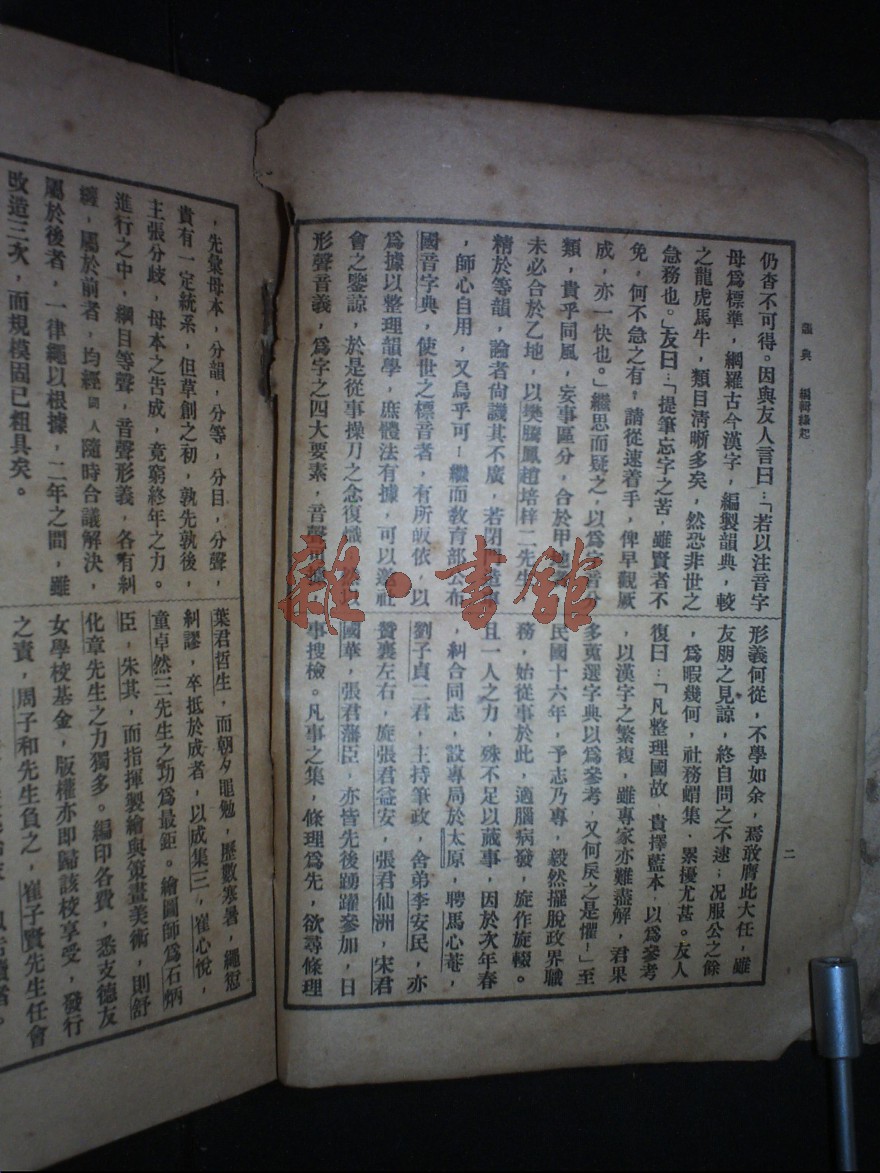 韻典　編輯緣起
二
仍杳不可得。因與友人言曰：「若以注音字
母爲標準，網羅古今漢字，編製韻典，較
之龍虎馬牛，類目清晰多矣，然恐非世之
急務也。」友曰：「提筆忘字之苦，雖賢者不
免，何不急之有。請從速着手，俾早觀厥
成，亦一快也。」繼思而疑之，以爲字音分
類，貴乎同風，妄事區分，合於甲地
未必合於乙地，以樊騰鳳趙培梓二先生
精於等韻，論者尙譏其不廣，若閉
，師心自用，又烏乎可！繼而教育部公布
國音字典，使世之標音者，有所皈依，以
爲據以整理韻學，庶體法有據，可以邀社
會之鑒諒，於是從事操刀之念復熾
形聲音義，爲字之四大要素，音聲可據
形義何從，不學如余，焉敢膺此大任，雖
友朋之見諒，終自問之不逮；况服公之餘
，爲暇幾何，社務蝟集，累擾尤甚。友人
復曰：「凡整理國故，貴擇藍本，以爲參考
，以漢字之繁複，雖專家亦難盡解，君果
多蒐選字典以爲參考，又何戾之是懼！」至
民國十六年，予志乃專，毅然擺脫政界職
務，始從事於此，適腦病發，旋作旋輟。
且一人之力，殊不足以蕆事，因於次年春
，糾合同志，設專局於太原，聘馬心菴，
劉子貞二君，主持筆政，舍弟李安民，亦
贊襄左右，旋張君益安，張君仙洲，宋君
國華，張君藩臣，亦皆先後踴躍參加，日
事搜檢。凡事之集，條理爲先，欲尋條理
，先彙母本，分韻，分等，分目，分聲，
貴有一定統系，但草創之初，孰先孰後，
主張分歧，母本之告成，竟窮終年之力。
進行之中，綱目等聲，音聲形義，各有糾
纏，屬於前者，均經同人隨時合議解決，
屬於後者，一律繩以根據，二年之間，雖
改造三次，而規模固已粗具矣。
葉君哲生，而朝夕黽勉，歷數寒暑，繩愆
糾謬，卒抵於成者，以成集三，崔心悅，
童卓然三先生之功爲最鉅。繪圖師爲石炳
臣，朱其，而指揮製繪與策畫美術，則舒
化章先生之力獨多。編印各費，悉支德友
女學校基金，版權亦即歸該校享受，發行
之責，周子和先生負之，崔子賢先生任會
雜·書館